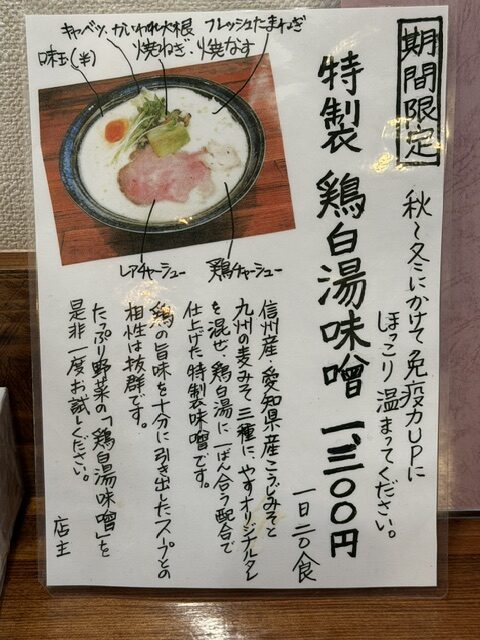 期間限定
秋〜冬にかけて免疫力UPに
ほっこり温まってください。
特製 鶏白湯味噌 一、三〇〇円
一日二〇食
キャベツ、かいわれ大根
フレッシュたまねぎ
味玉(半)
焼ねぎ・焼なす
レアチャーシュー
鶏チャーシュー
信州産・愛知県産こうじみそと
九州の麦みそ三種に、やすオリジナルタレ
を混ぜ、鶏白湯に一ばん合う配合で
仕上げた特製味噌です。
鶏の旨味を十分に引き出したスープとの
相性は抜群です。
たっぷり野菜の「鶏白湯味噌」を
是非一度お試しください。
店主